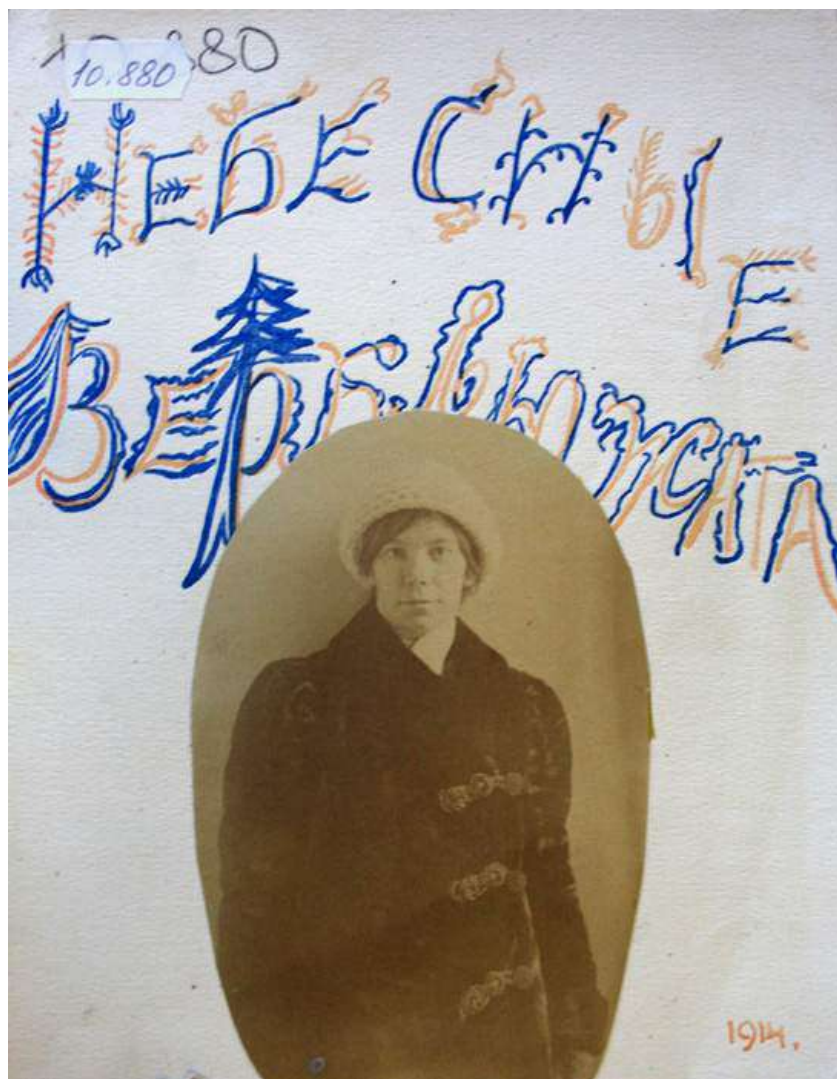 880
10.880
НЕБЕСНЫЕ
ВЕРБЛЮЖАТА
1914.